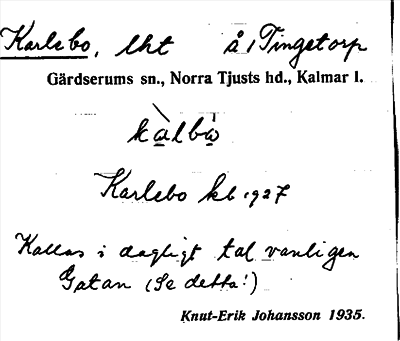 Karlebo, lht å 1 Tingetorp
Gärdserums sn., Norra Tjusts hd., Kalmar l.
kàlbo
Karlebo kb 1927
Kallas i dagligt tal vanligen
Gatan (Se detta!)
Knut-Erik Johansson 1935.